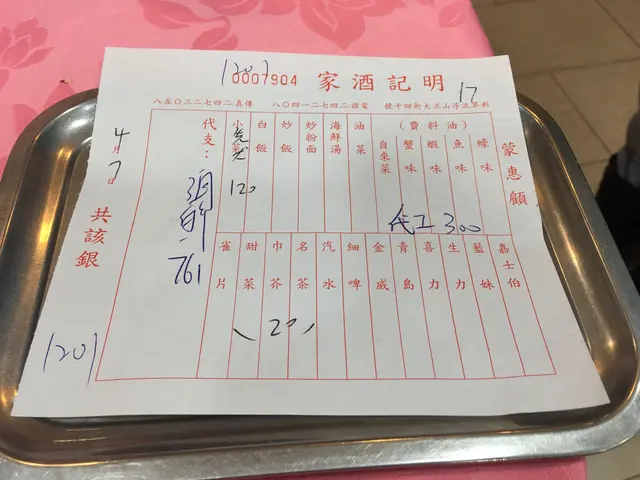 1201
0007904
明記酒家
17
新界流浮山正大街四十號
電話二四七二一四〇八
傳真二四七二三〇五八
蒙惠顧
(油料費)
蠔味
魚味
蝦味
蟹味
自來菜
代工300
油菜
海鮮湯
炒粉面
炒飯
白飯
小菜
120
代支：
761
嘉士伯
藍妹
生力
喜力
青島
金威
細啤
汽水
名茶
巾芥
20
甜菜
雀片
4月7日
共該銀
1201